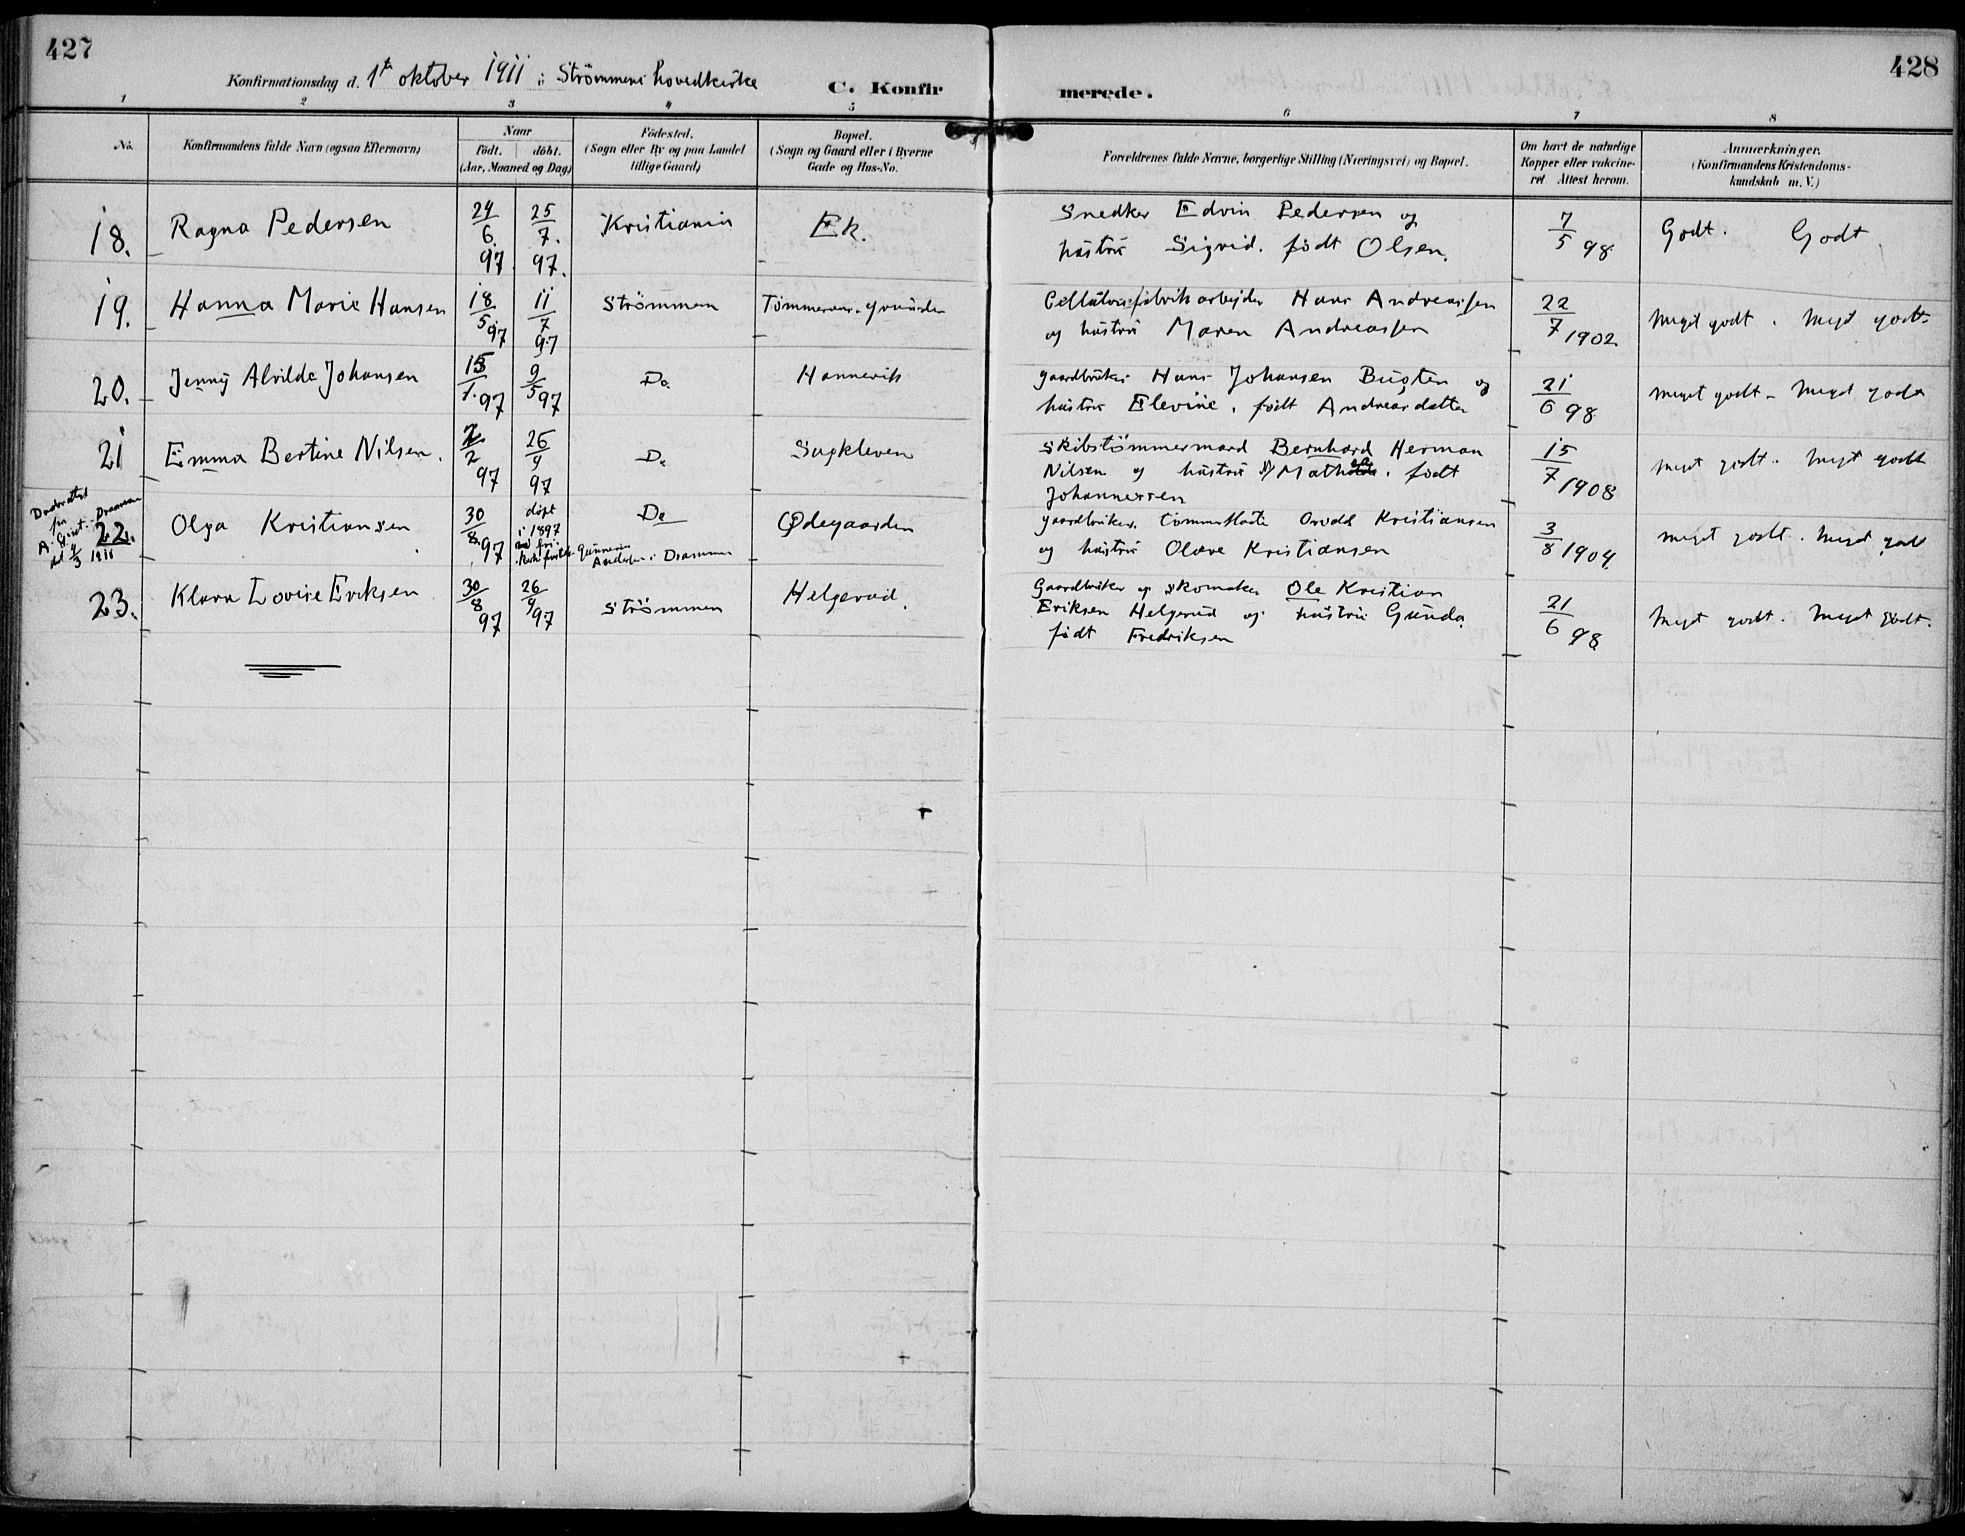 427
428
Konfirmationsdag d. 1te oktober 1911 i Strömmens hovedkirke
C. Konfir
merede.
1 2 3 4 5 6 7 8
No.
Konfirmandens fulde Navn (ogsaa Efternavn)
Naar
födt. döbt.
(Aar, Maaned og Dag)
Födested.
(Sogn eller By og paa Landet
tillige Gaard)
Bopæl.
(Sogn og Gaard eller i Byerne
Gade og Hus-No.
Forældrenes fulde Navne, borgerlige Stilling (Næringsvei) og Bopæl.
Om havt de naturlige
Kopper eller vakcine-
ret Attest herom.
Anmærkninger.
(Konfirmandens Kristendoms-
kundskab m. V.)
18. Ragna Pedersen 24/6 97 25/7 97. Kristiania Ek. Snedker Edvin Pedersen og
hustru Sigrid. födt Olsen. 7/5 98 Godt. Godt.
19. Hanna Marie Hansen 18/5 97 11/7 97 Strömmen Cellulosefabrikarbejder Hans Andreassen
og hustru Maren Andreassen 22/7 1902 Meget godt. Meget godt.
20. Jenny Alvilde Johansen 15/1. 97 9/5 97 Do. Hannevik gaardbruker Hans Johansen Bugten og
hustru Elevine. födt Andreasdatter 21/6 98 Meget godt. Meget godt
21 Emma Bertine Nilsen. 2/2 97 25/4 97 Do Sagkleven Skibstömmermand Bernhard Herman
Nilsen og hustru födt
Johannessen 15/7 1908 Meget godt. Meget godt
22. Olga Kristiansen 30/8. 97 döpt
i 1897
Andersen i Drammen
Do Ødegaarden gaardbruker, Kristiansen
og hustru Olave Kristiansen 3/8 1904 Meget godt. Meget godt
4/3 1911
23. Klara Lovise Eriksen 30/8 97 26/9 97 Strömmen Helgerud. Gaardbruker og skomaker Ole Kristian
Eriksen Helgerud og hustru Gunda
födt Fredriksen 21/6 98 Meget godt. Meget godt.